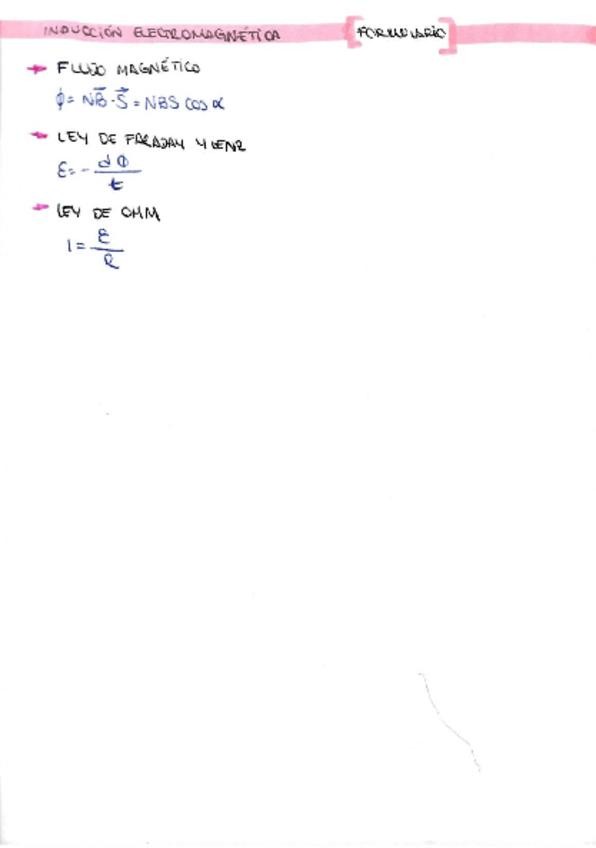 INDUCCIÓN ELECTROMAGNÉTICA [FORMULARIO]
→ FLUJO MAGNÉTICO
ϕ = NB⃗·S⃗ = NBS cos α
→ LEY DE FARADAY Y LENZ
ε = - dΦ / t
→ LEY DE OHM
I = ε / R